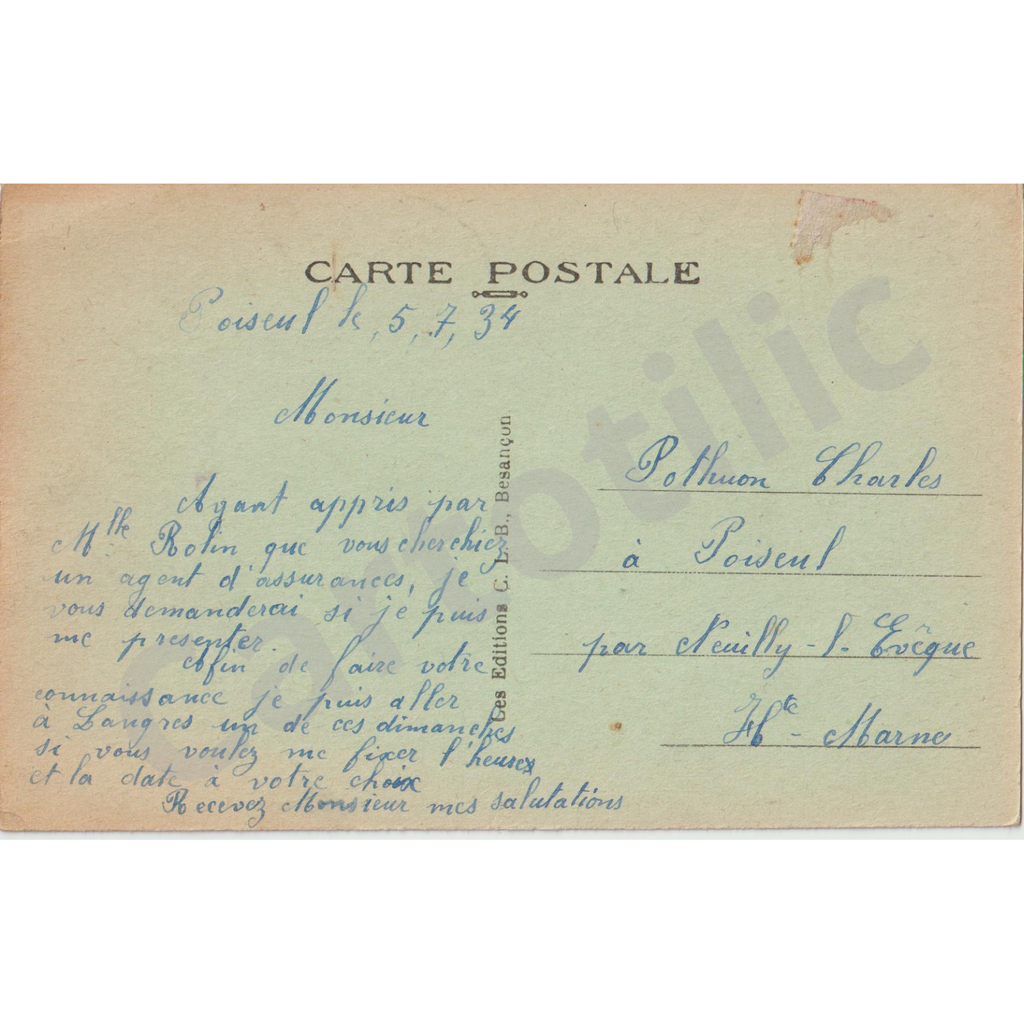 CARTE POSTALE
Poiseul le, 5, 7, 34
Monsieur
Ayant appris par
Mlle Rolin que vous cherchiez
un agent d'assurances, je
vous demanderai si je puis
me presenter.
Afin de faire votre
connaissance je puis aller
à Langres un de ces dimanches
si vous voulez me fixer l'heure
et la date à votre choix
Recevez Monsieur mes salutations
Les Editions C. L. B., Besançon
Pothuon Charles
à Poiseul
par Neuilly-l-Evêque
Hte - Marne
Cartotilic